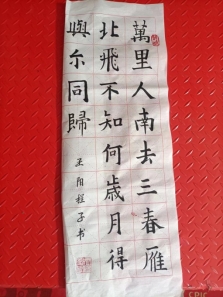 萬里人南去三春雁
北飛不知何歲月得
與尓同歸
王阳程子书